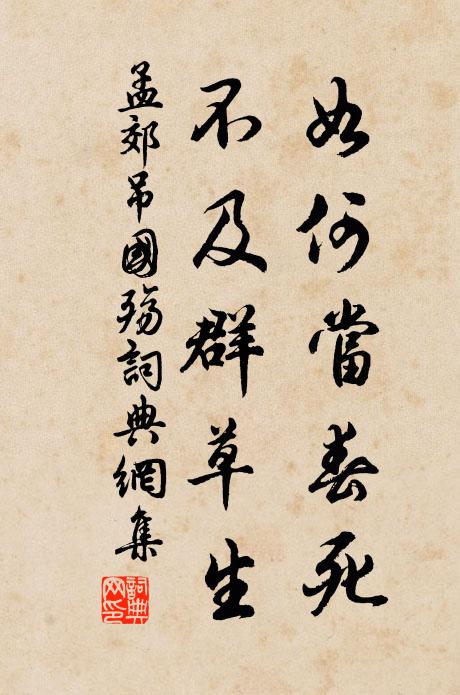 如何當春死
不及群草生
孟郊弔國殤詞典網集
詞典
网印